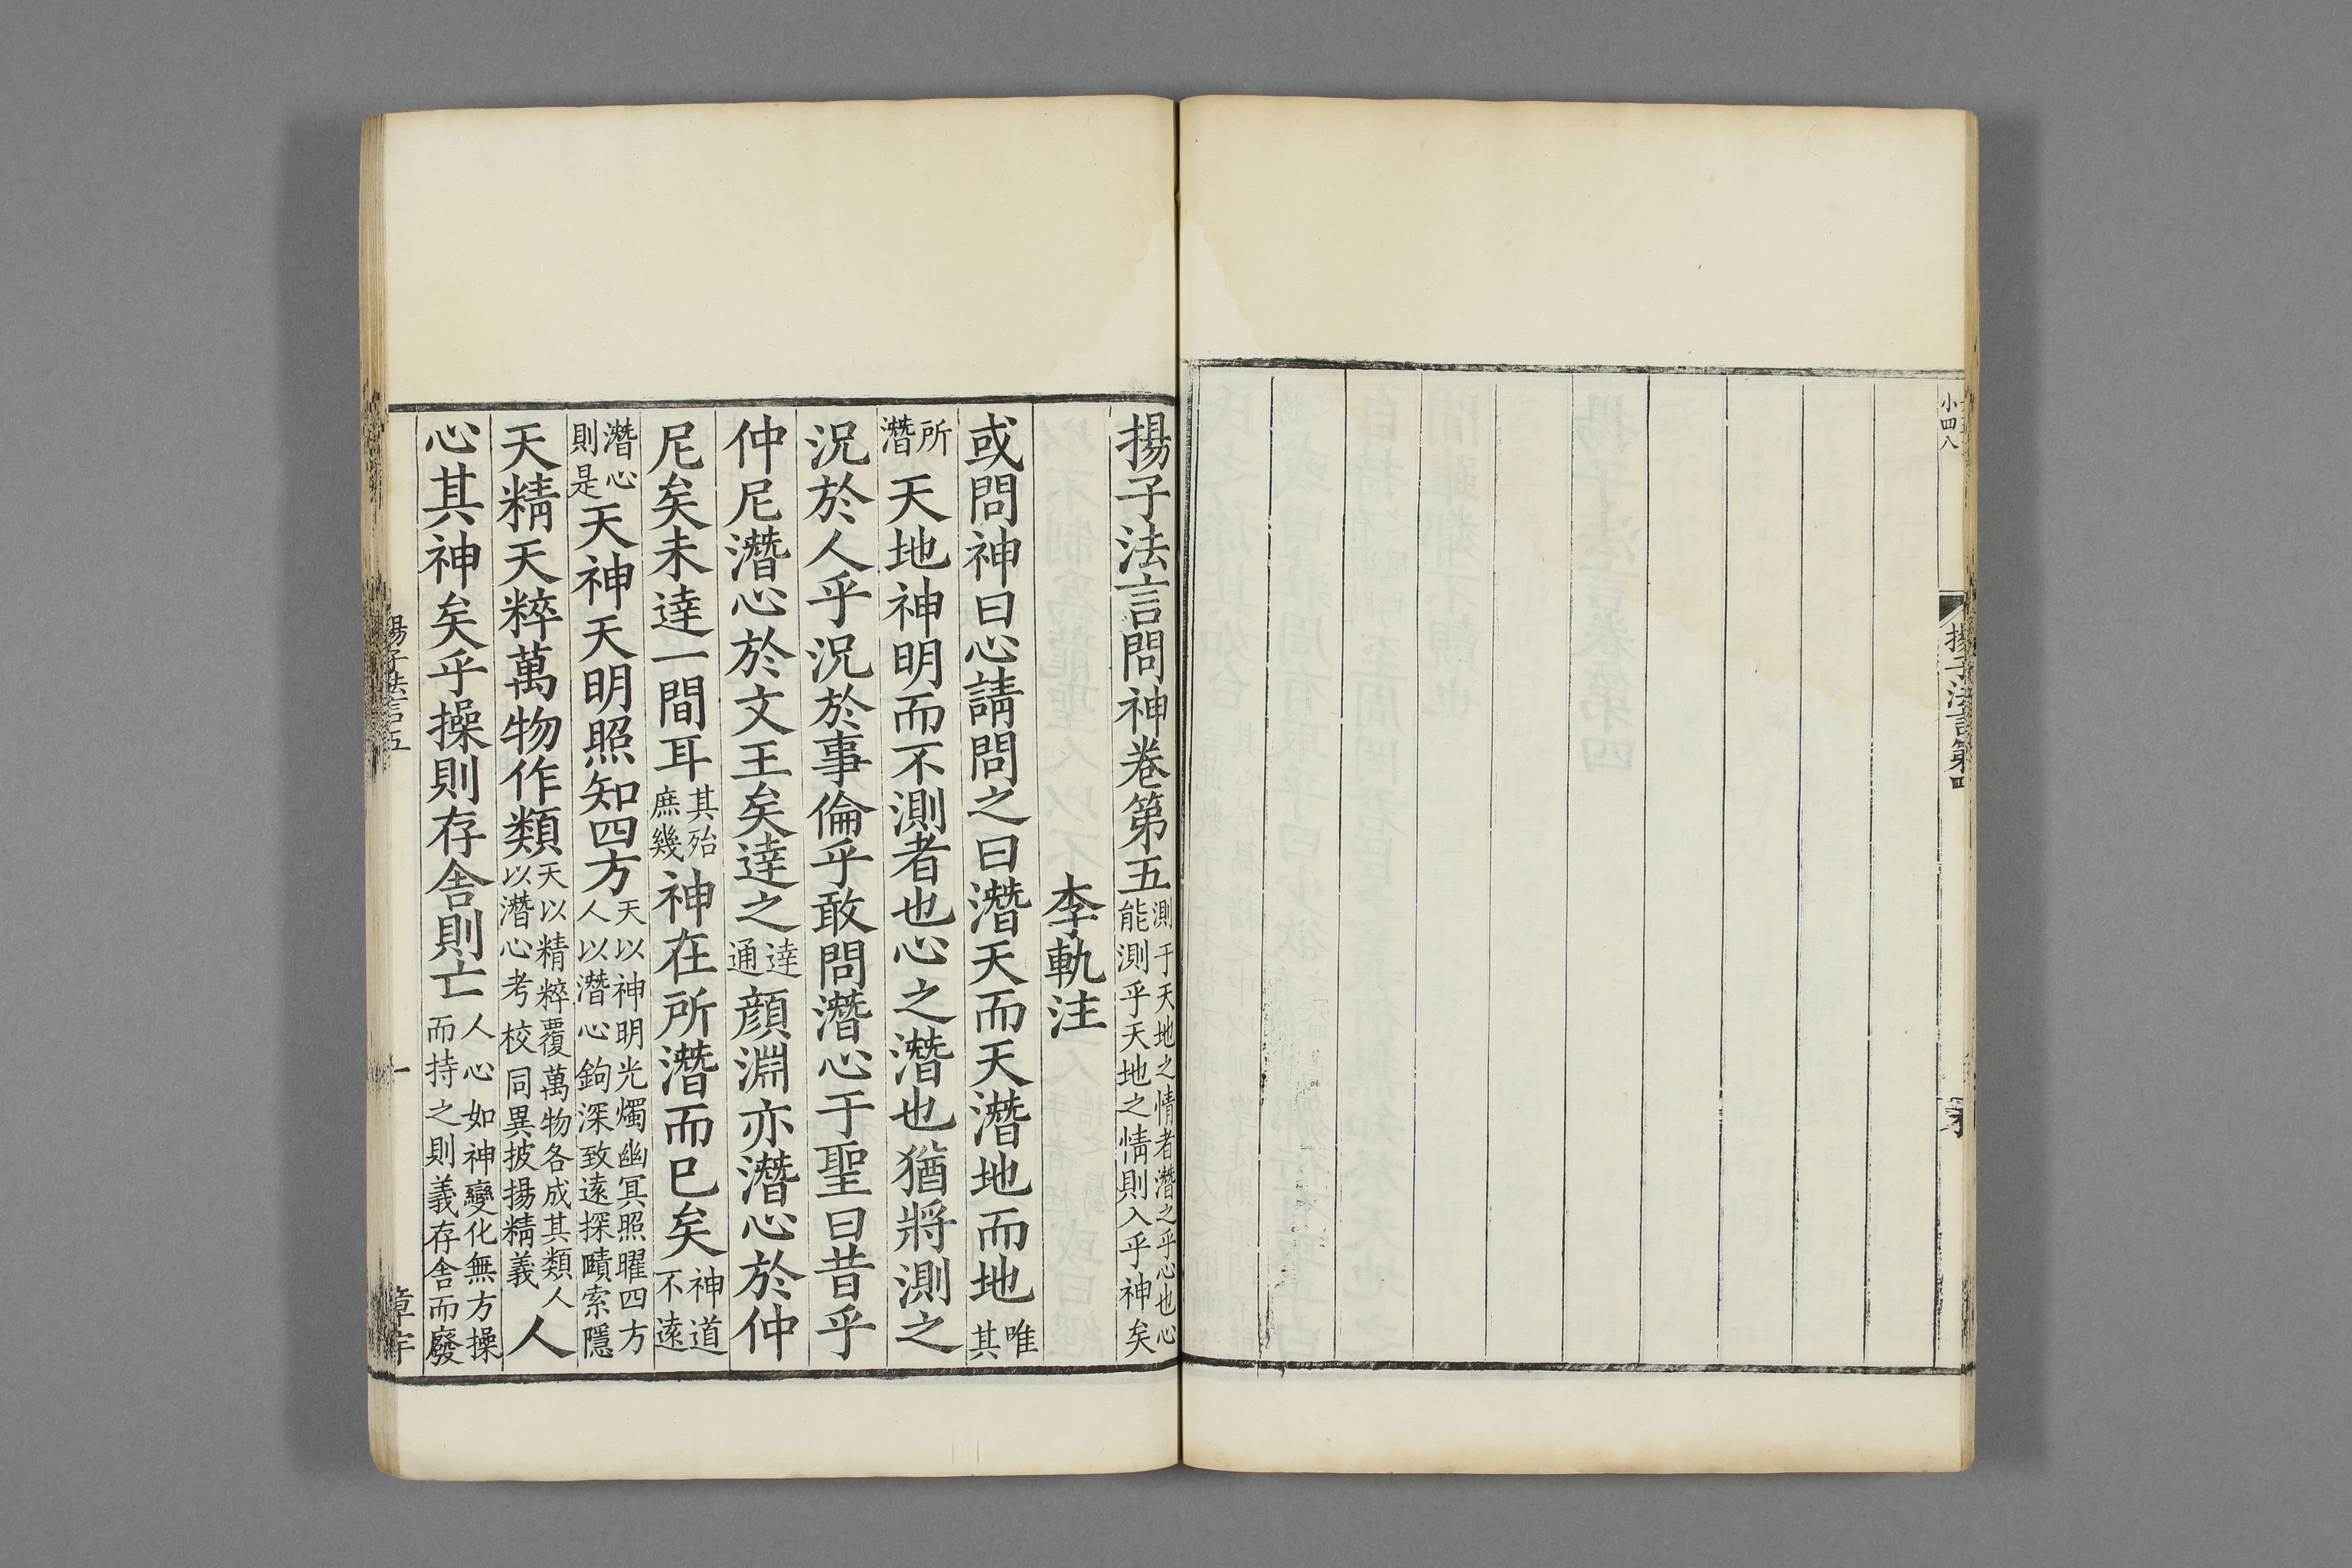 小四八
揚子法言第四
揚子法言問神卷第五測于天地之情者潛之乎心也心能測乎天地之情則入乎神矣
李軌注
或問神曰心請問之曰潛天而天潛地而地唯其
所潛天地神明而不測者也心之潛也猶將測之
況於人乎況於事倫乎敢問潛心于聖曰昔乎
仲尼潛心於文王矣達之達通顏淵亦潛心於仲
尼矣未達一間耳其殆庶幾神在所潛而已矣神道不遠
潛心則是天神天明照知四方天以神明光燭幽冥照曜四方人以潛心鉤深致遠探賾索隱
天精天粹萬物作類天以精粹覆萬物各成其類人以潛心考校同異披揚精義人
心其神矣乎操則存舍則亡人心如神變化無方操而持之則義存舍而廢
揚子法言五
一
章宇